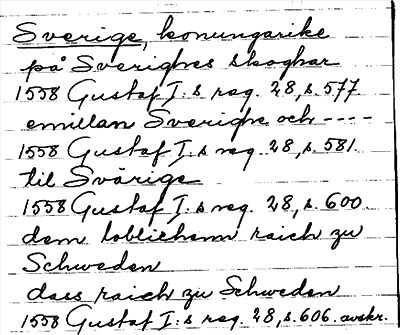 Sverige, konungarike
på Sverighes skoghar
1558 Gustaf I:s reg. 28, s. 577
emillan Sverighe och ----
1558 Gustaf I:s reg. 28, s. 581.
til Svärige
1558 Gustaf I:s reg. 28, s. 600.
dem loblichenn raich zu
Schweden
dass raich zu Schweden
1558 Gustaf I:s reg. 28, s. 606. avskr.